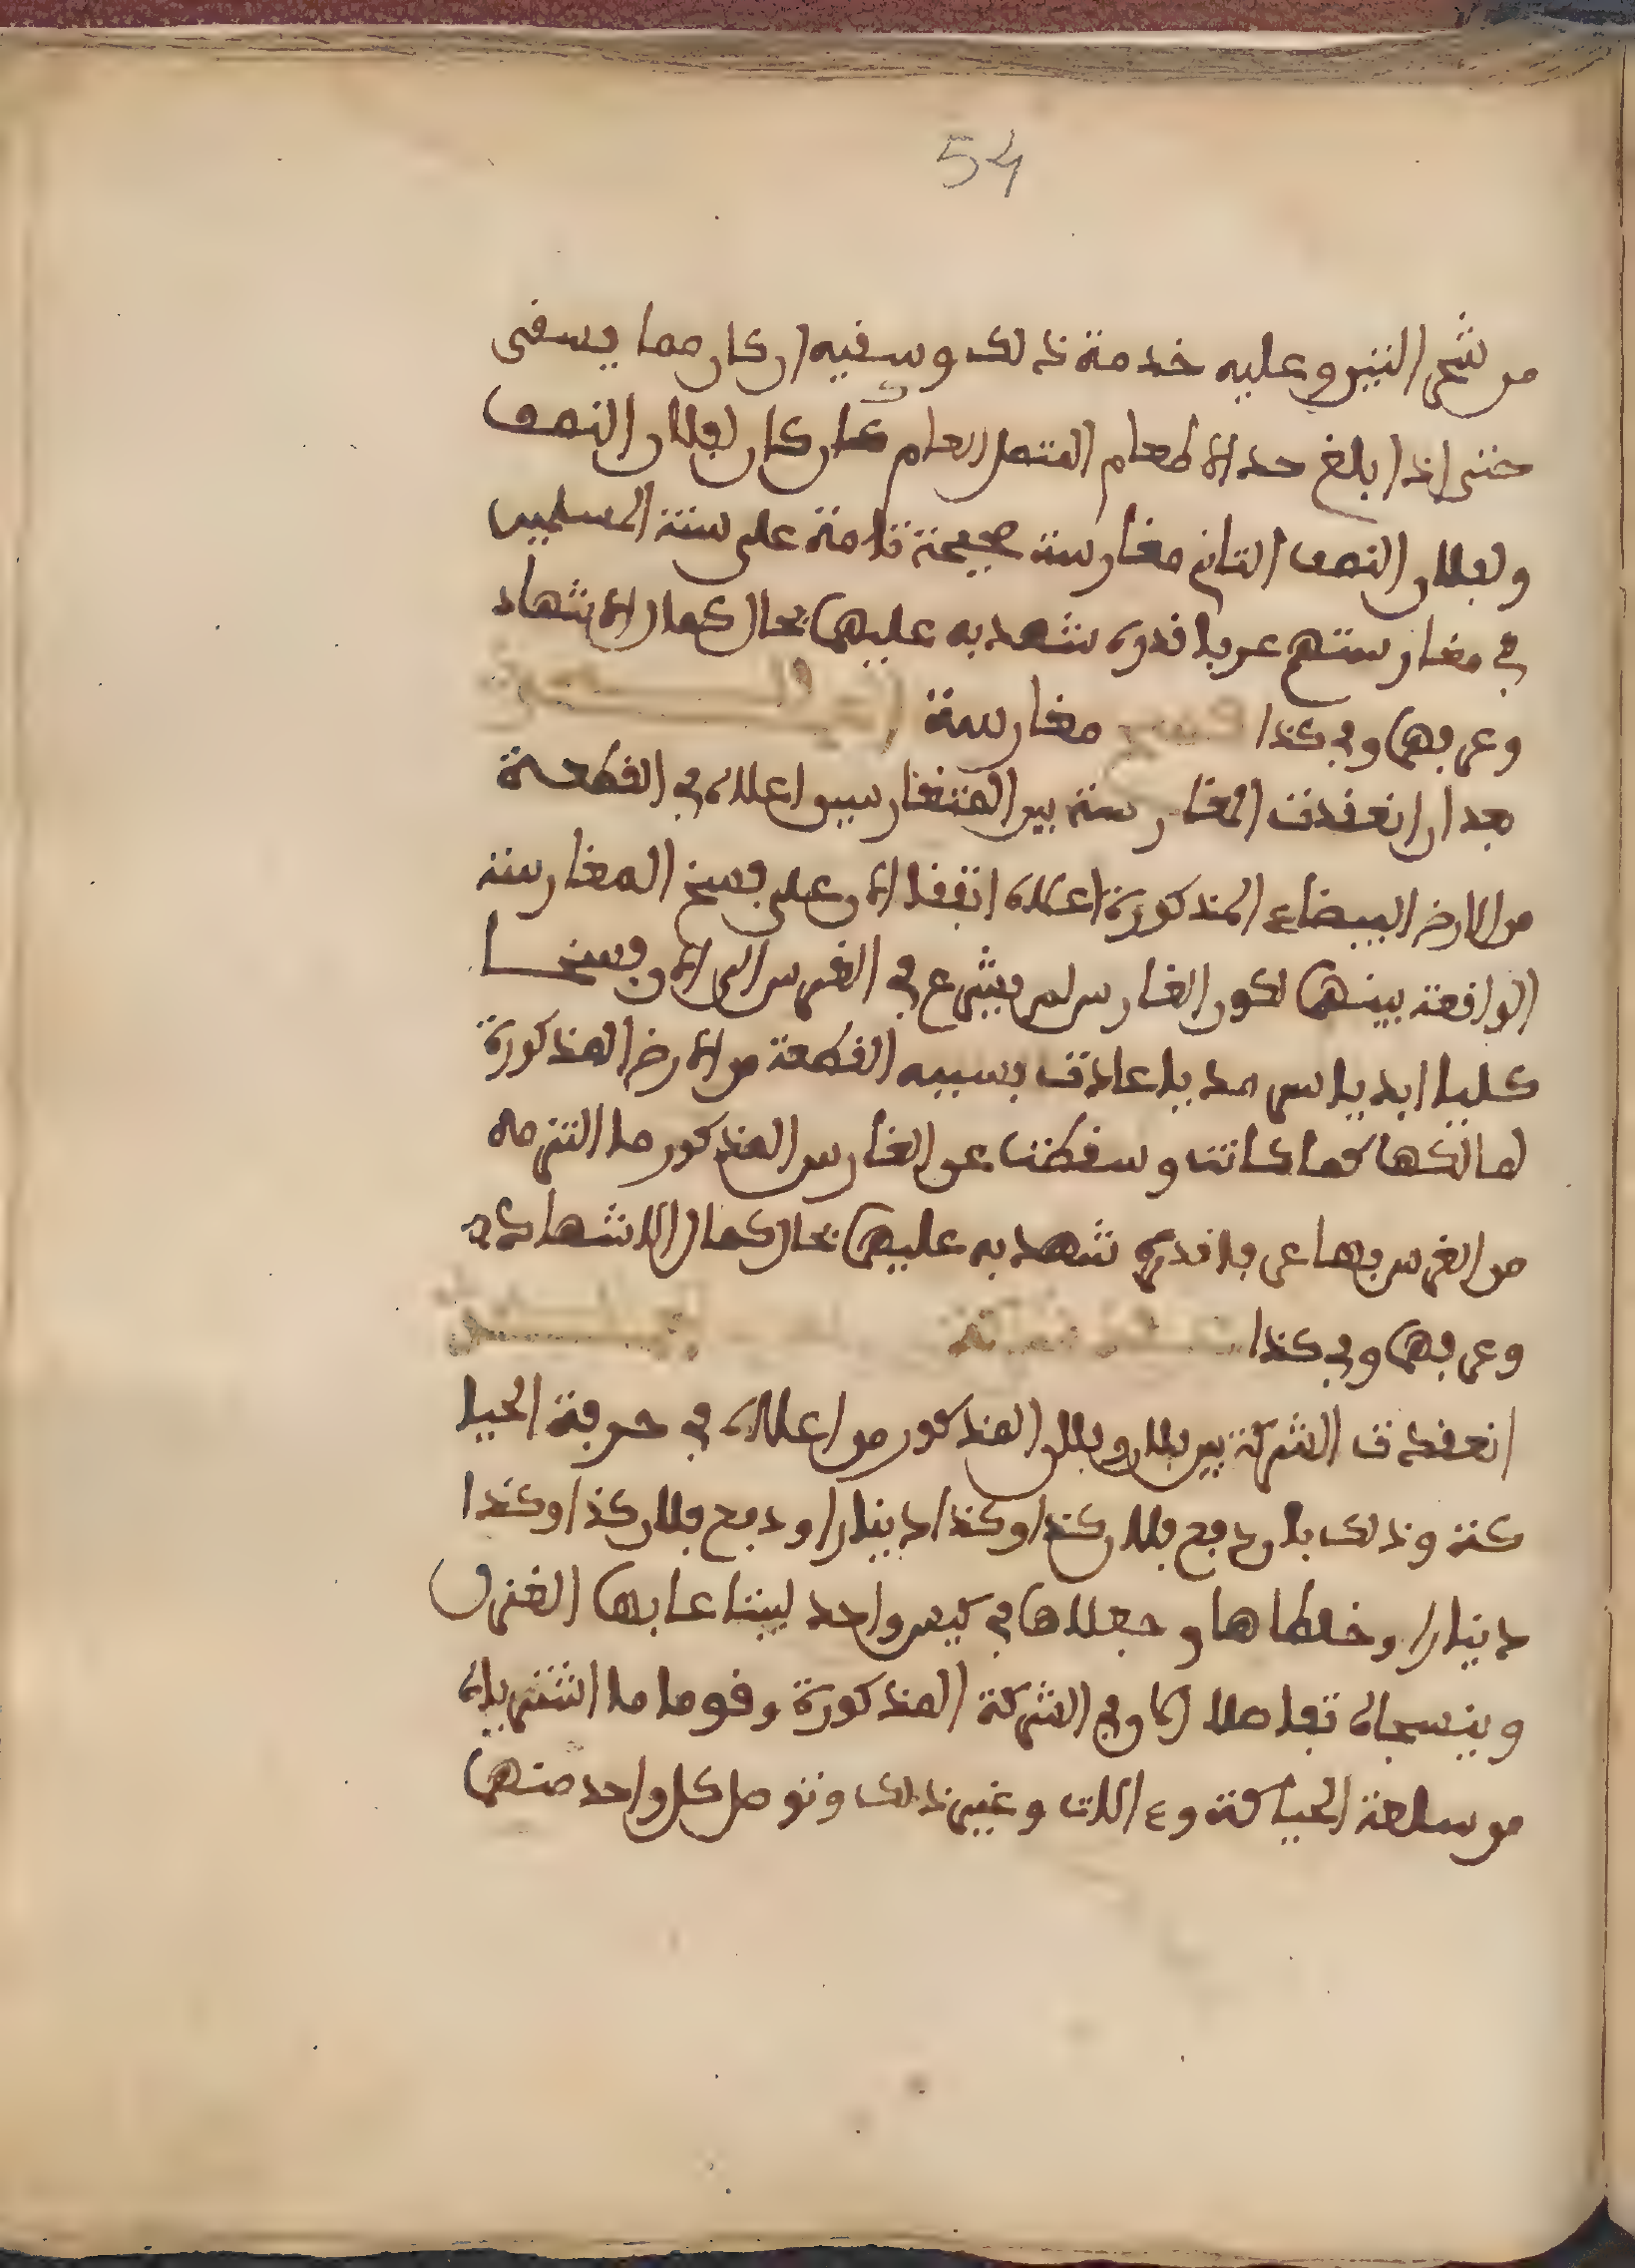 54
من شجر التين وعليه خدمة ذلك وسقيه ان كان مما يسقى
حتى اذا بلغ حد الاطعام المتصل العام كان لفلان النصف
ولفلان النصف الثاني مغارسة صحيحة تامة على سنة المسلمين
في مغارستهم عرفا قدره شهد به عليهما بحال كمال الاشهاد
وعرفهما وفي كذا فسخ مغارسة
بعد ان انعقدت المغارسة بين المتغارسين اعلاه في القطعة
من الارض البيضاء المذكورة اعلاه اتفقا الان على فسخ المغارسة
الواقعة بينهما لكون الغارس لم يشرع في الغرس الى الان فسخا
كليا ابديا سرمديا عادت بسببه القطعة من الارض المذكورة
لمالكها كما كانت وسقطت عن الغارس المذكور ما التزمه
من الغرس بها عرفا قدره شهد به عليهما بحال كمال الاشهاد
وعرفهما وفي كذا
انعقدت الشركة بين فلان وفلان المذكور من اعلاه في حرفة الحيا
كة وذلك بان دفع فلان كذا وكذا دينارا ودفع فلان كذا وكذا
دينارا وخلطاها وجعلاها في كيس واحد ليبتاعا بها الغزل
وينسجانه تفاصلا الان في الشركة المذكورة وقوما ما اشترياه
من سلعة الحياكة وءالات وغير ذلك وتوصل كل واحد منهما